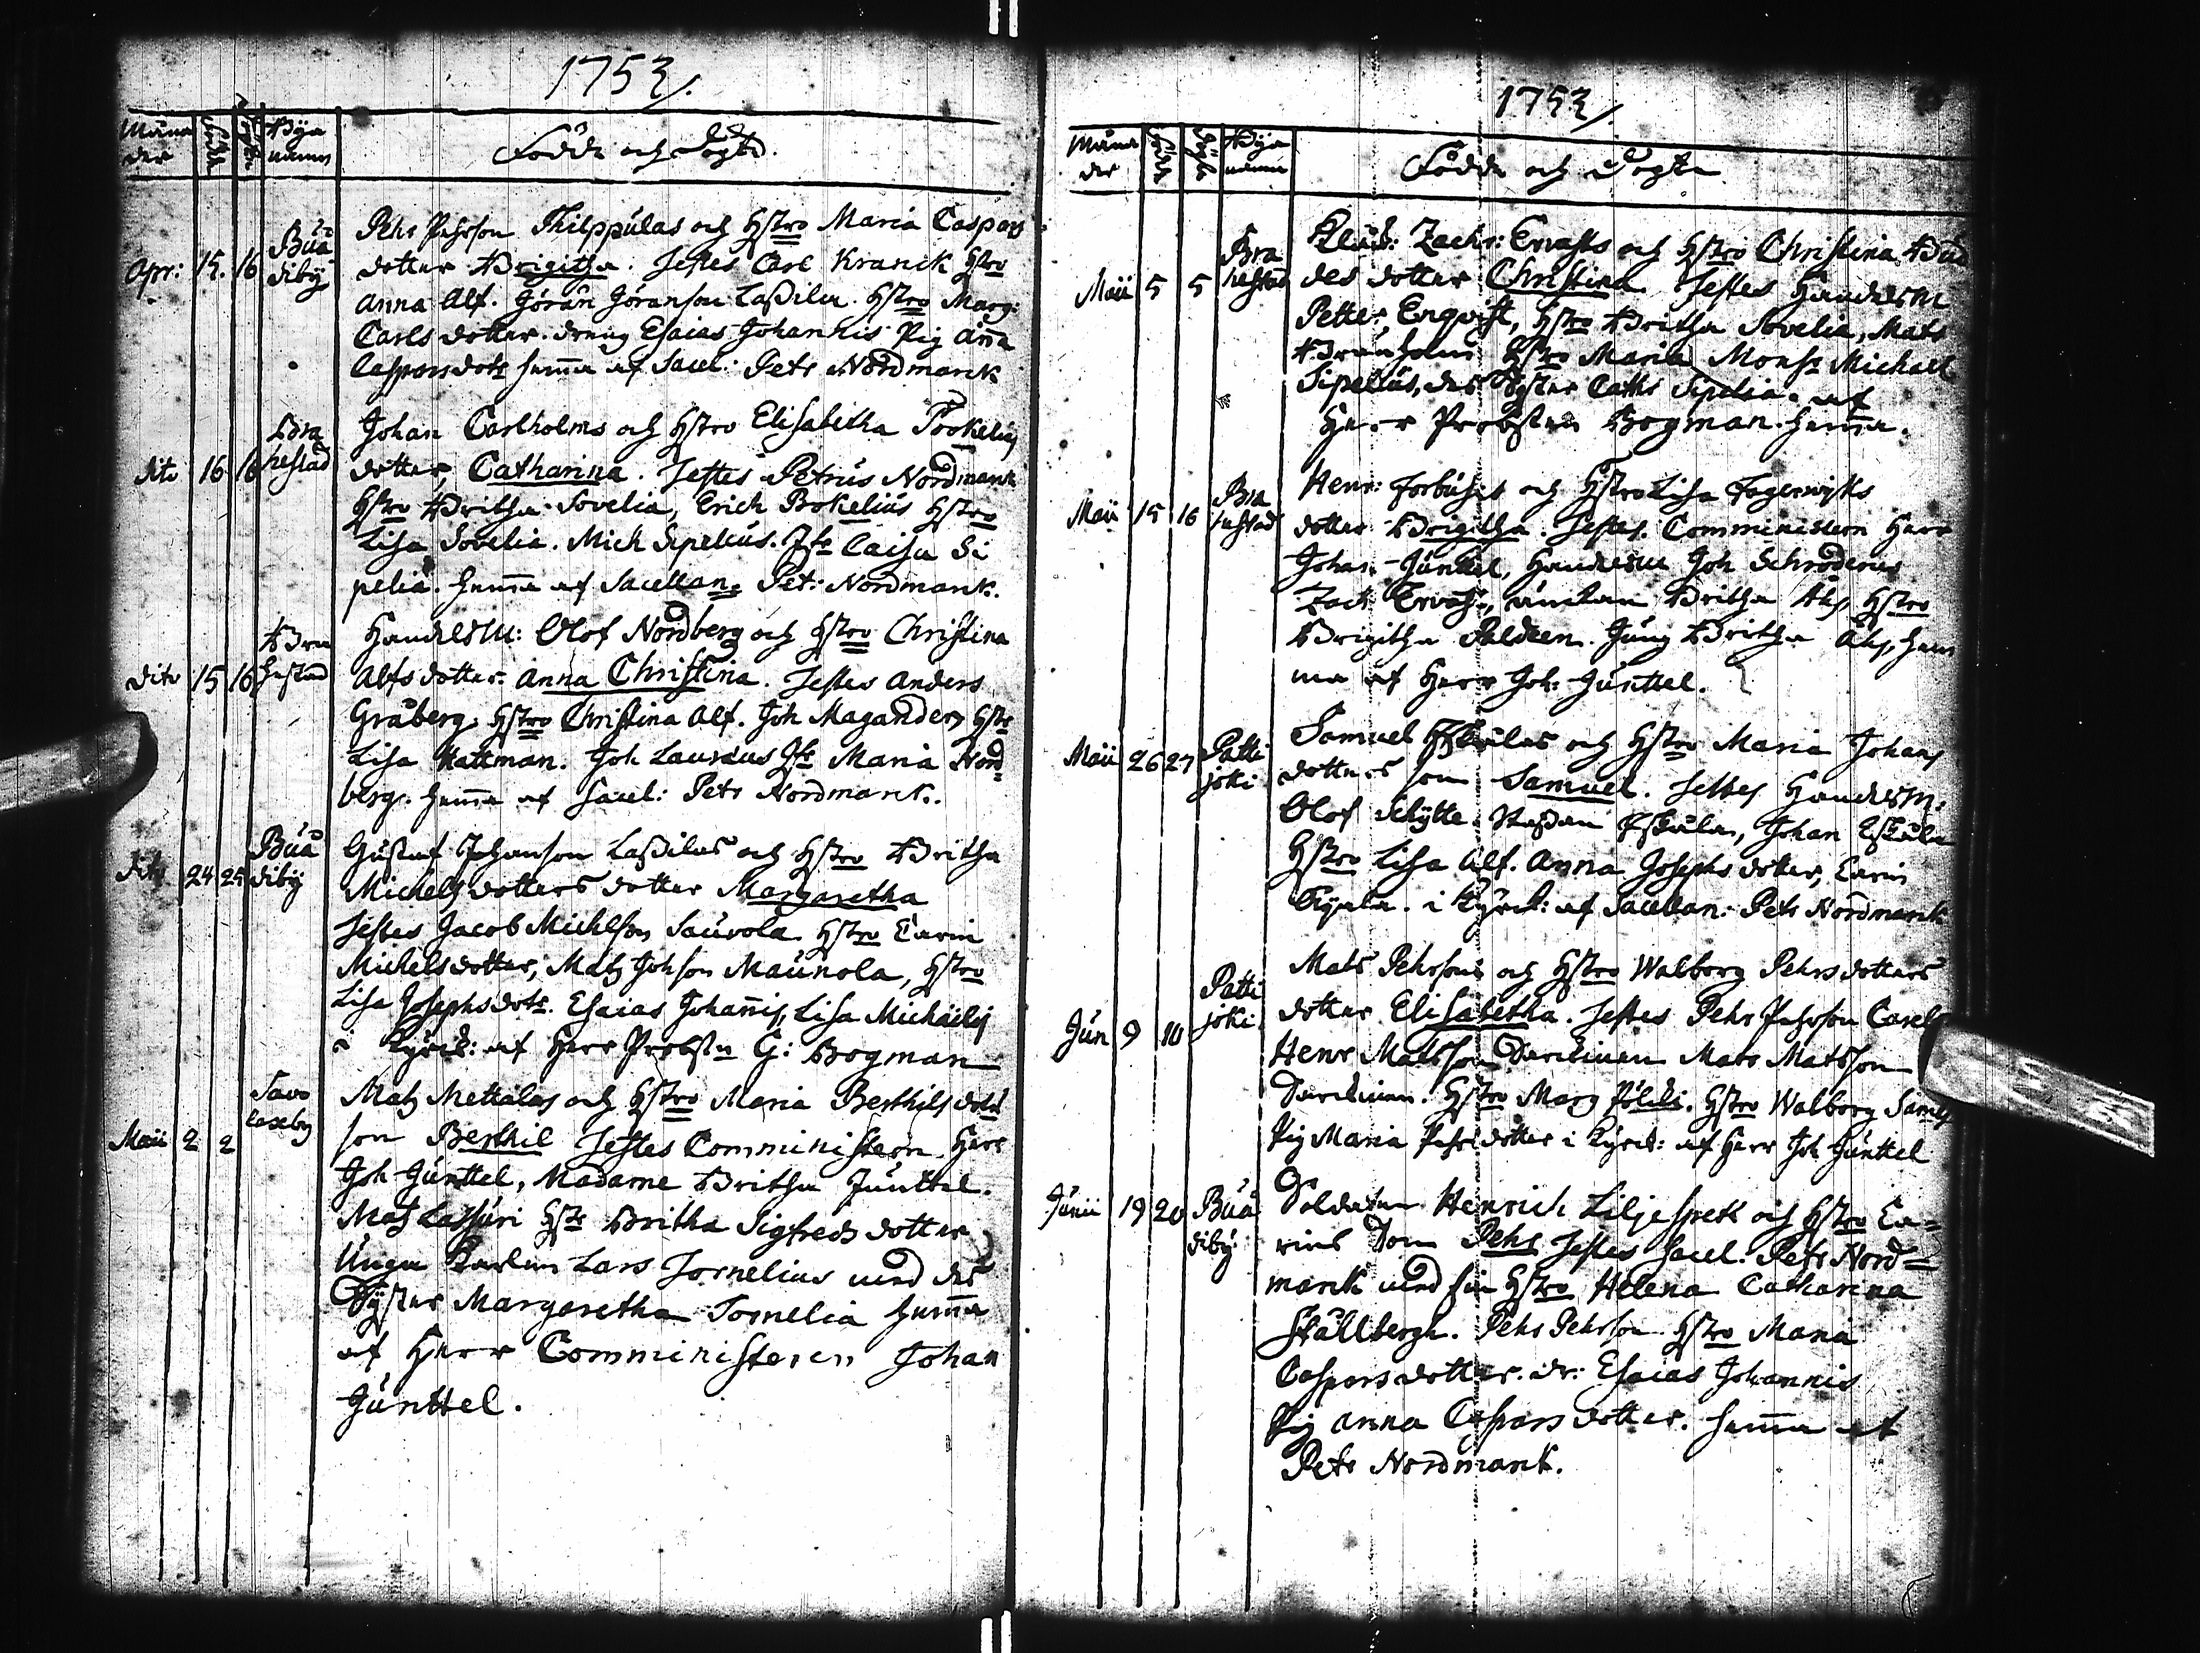 1753/.
Måna
der
Födde
Döpte
Bÿa
namn
Födde och Döpte.
Apr: 15. 16 Bria
diby
Pehr Pehrson Philppulas och Hstro Maria Caspars
dotter Brigitha. Testes Carl Kranck Hstro
Anna Alf. Göran Göranson Laßila. Hstro Marg:
Carls dotter. dreng Esaias Johannis Pig Anna
Caspars dotr hemma af Sacel: Petr Nordmanck
dito 16 16 Bra
hestad
Johan Carlholms och Hstro Elisabetha
dotter, Catharina. Testes Petrus Nordmanck
Hstro Britha Sovelia, Erich Hstro
Lisa Sovelia. Mich Sipelius. Jfr Caisa Si
pelia. hemma af Sacellan: Petr Nordmanck.
dito 15 16 Bra
hestad
Handelsm: Olof Nordberg och Hstro Christina
Alfs dotter Anna Christina. Testes Anders
Gråberg. Hstro Christina Alf. Joh Maganders Hstr
Lisa Mattman. Joh Lauræus Jfr Maria Nord
berg. hemma af Sacel: Petr Nordmanck.
dito 24 25 Bria
diby
Gustaf Johanson Laßilas och Hstro Britha
Michels dotters dotter Margaretha
Testes Jacob Michelson Saurola Hstro Carin
Michelsdotter, Matz Johson Maunola, Hstro
Lisa Josephsdotr. Esaias Johannis, Lisa Michaelis
i Kyrck: af Herr Probsten G: Bogman
Maii 2 2 Savo
laxby
Matz Mettälas och Hstro Maria Berthils dotr
son Berthil Testes Comministern Herr
Joh Junttel, Madame Britha Junttel.
Matz Hstr Britha Sigfreds dotter
Unga Karlen Lars Tornelius med des
Syster Margaretha Tornelia hemma
af Herr Comministeren Johan
Junttel.
1753/.
Måna
der
Födde
Döpte
Bÿa
namn
Födde och Döpte
Maii 5 5 Bra
hestad
Zachr: Ervasts och Hstro Christina Bud
des dotter Christina Testes Handelsm
Petter Enqvist, Hstro Britha Sovelia, Mats
Hstro Maria Monsr Michael
Sipelius, des Syster Cathr Sipelia. af
Herr Probsten Bogman hemma.
Maii 15 16 Bra
hestad
Henr: Forbusis och Hstro Lisa Fagerwijks
dotter Brigitha. Testes. Comministern Herr
Johan Junttel, Handelsm Joh Schroderus
Zach Ervast, enckan Britha Hstro
Brigitha Jung Britha hem
ma af Herr Joh: Junttel.
Maii 26 27 Patti
joki
Samuel Eskolas och Hstro Maria Johans
dotters son Samuel. Testes Handelsm:
Olof Schÿtte. Staffan Eskola, Johan Eskola
Hstro Lisa Alf. Anna Josephs dotter, Carin
i Kyrck: af Sacellan: Petr Nordmanck
Jun 9 10 Patti
joki
Mats Pehrsons och Hstro Walborg Pehrs dotters
dotter Elisabetha. Testes Pehr Pehrson
Henr Matsson Mats Matsson
Hstro Marg Hstro Walborg
Pig Maria Pehrs dotter i Kyrck: af Herr Joh Junttel
Junii 19 20 Bria
diby
Soldaten Henrich Liljespets och Hstro Ca=
rins Son Pehr Testes Sacel: Petr Nord=
manck med sin Hstro Helena Catharina
Stållbergh. Pehr Pehrson Hstro Maria
Caspars dotter. dr: Esaias Johannis
Pig Anna Caspars dotter. hemma af
Petr Nordmanck.